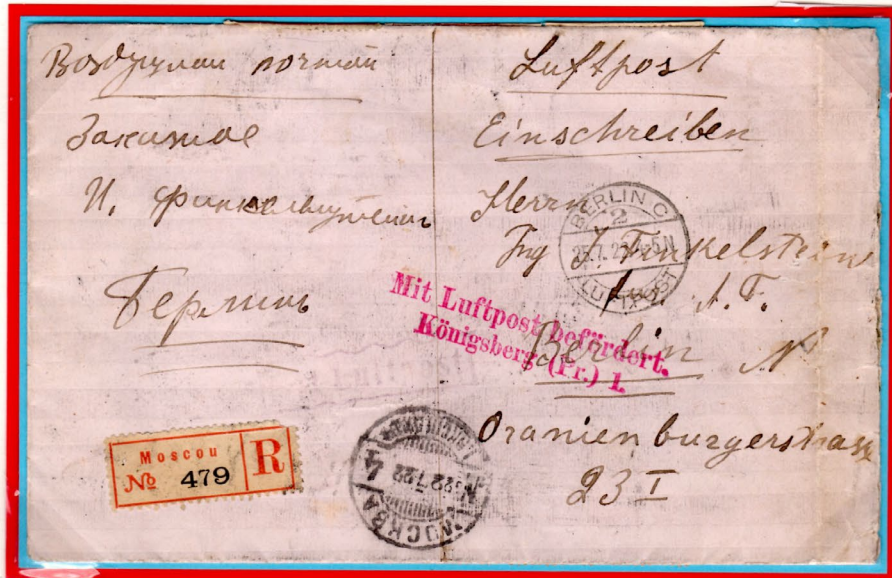 Воздушная почтой
Заказное
И. Финкельштейн
Берлинъ
Luftpost
Einschreiben
Herrn
Ing J. Finkelstein
A. T.
Berlin N
Oranienburgerstrasse
23 I
BERLIN C
2
25.7.22 4-5N
LUFTPOST
Mit Luftpost befördert.
Königsberg (Pr.) 1.
Moscou
№ 479
R
МОСКВА 4
22.7.22